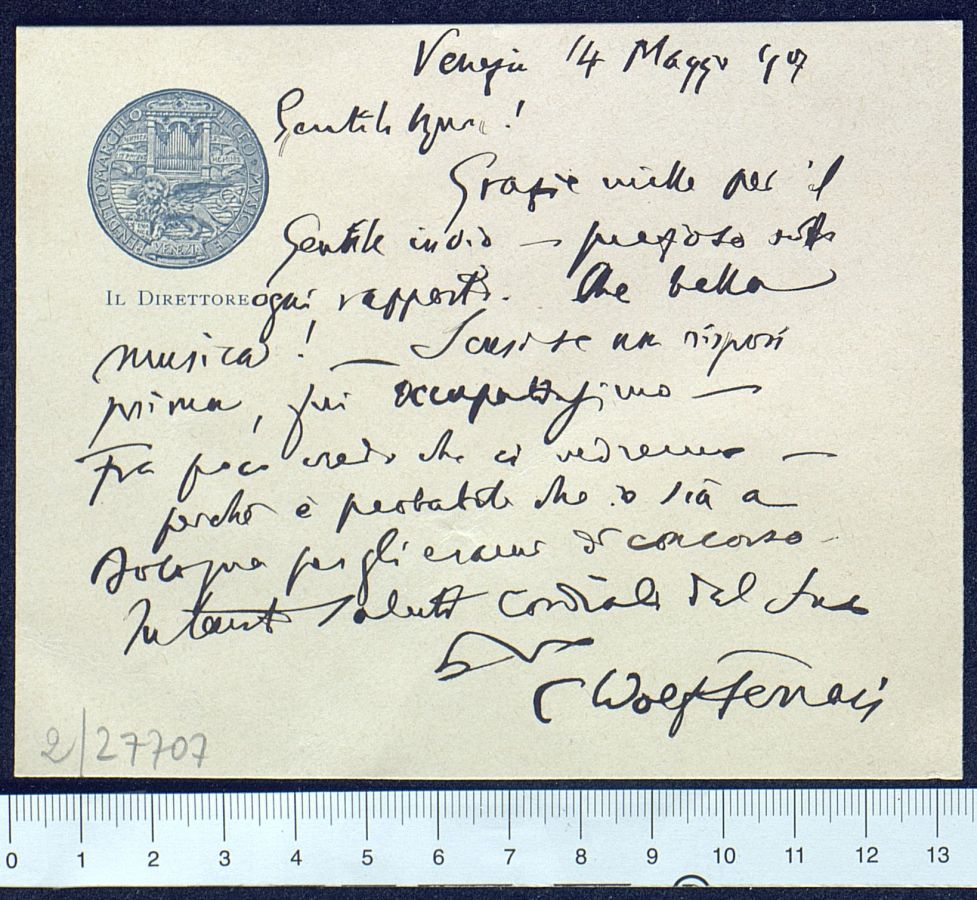 Venezia 14 Maggio '907
LICEO MUSICALE BENEDETTO MARCELLO
VENEZIA
Gentile !
Grazie mille per il
Gentile invio — prezioso sotto
IL DIRETTORE
ogni rapporto. Che bella
musica! — Scusi se non risposi
prima, fui occupatissimo —
Fra poco credo che ci vedremo —
perchè è probabile che io sia a
Bologna per gli esami di concorso
Intanto saluti cordiali dal suo
E Wolf Ferrari
2/27707
0 1 2 3 4 5 6 7 8 9 10 11 12 13